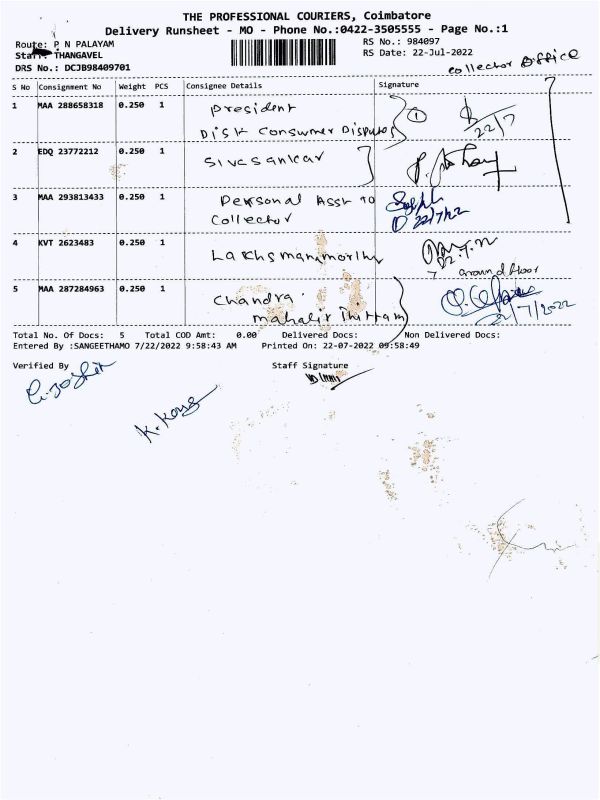 THE PROFESSIONAL COURIERS, Coimbatore
Delivery Runsheet - MO - Phone No.:0422-3505555 - Page No.:1
Route: P N PALAYAM
RS No.: 984097
Staff: THANGAVEL
RS Date: 22-Jul-2022
DRS No.: DCJB98409701
collector office
S No Consignment No Weight PCS Consignee Details Signature
1 MAA 288658318 0.250 1 President 1
Disk Consumer Disputes 22/7
2 EDQ 23772212 0.250 1 Sivasankar
3 MAA 293813433 0.250 1 Personal Asst to
Collector 22/7/22
4 KVT 2623483 0.250 1 Lakhsmanmorthy 22.7.22
ground floor
5 MAA 287284963 0.250 1 Chandra
Mahalir Thittam 22/7/2022
Total No. Of Docs: 5 Total COD Amt: 0.00 Delivered Docs: Non Delivered Docs:
Entered By :SANGEETHAMO 7/22/2022 9:58:43 AM Printed On: 22-07-2022 09:58:49
Verified By Staff Signature